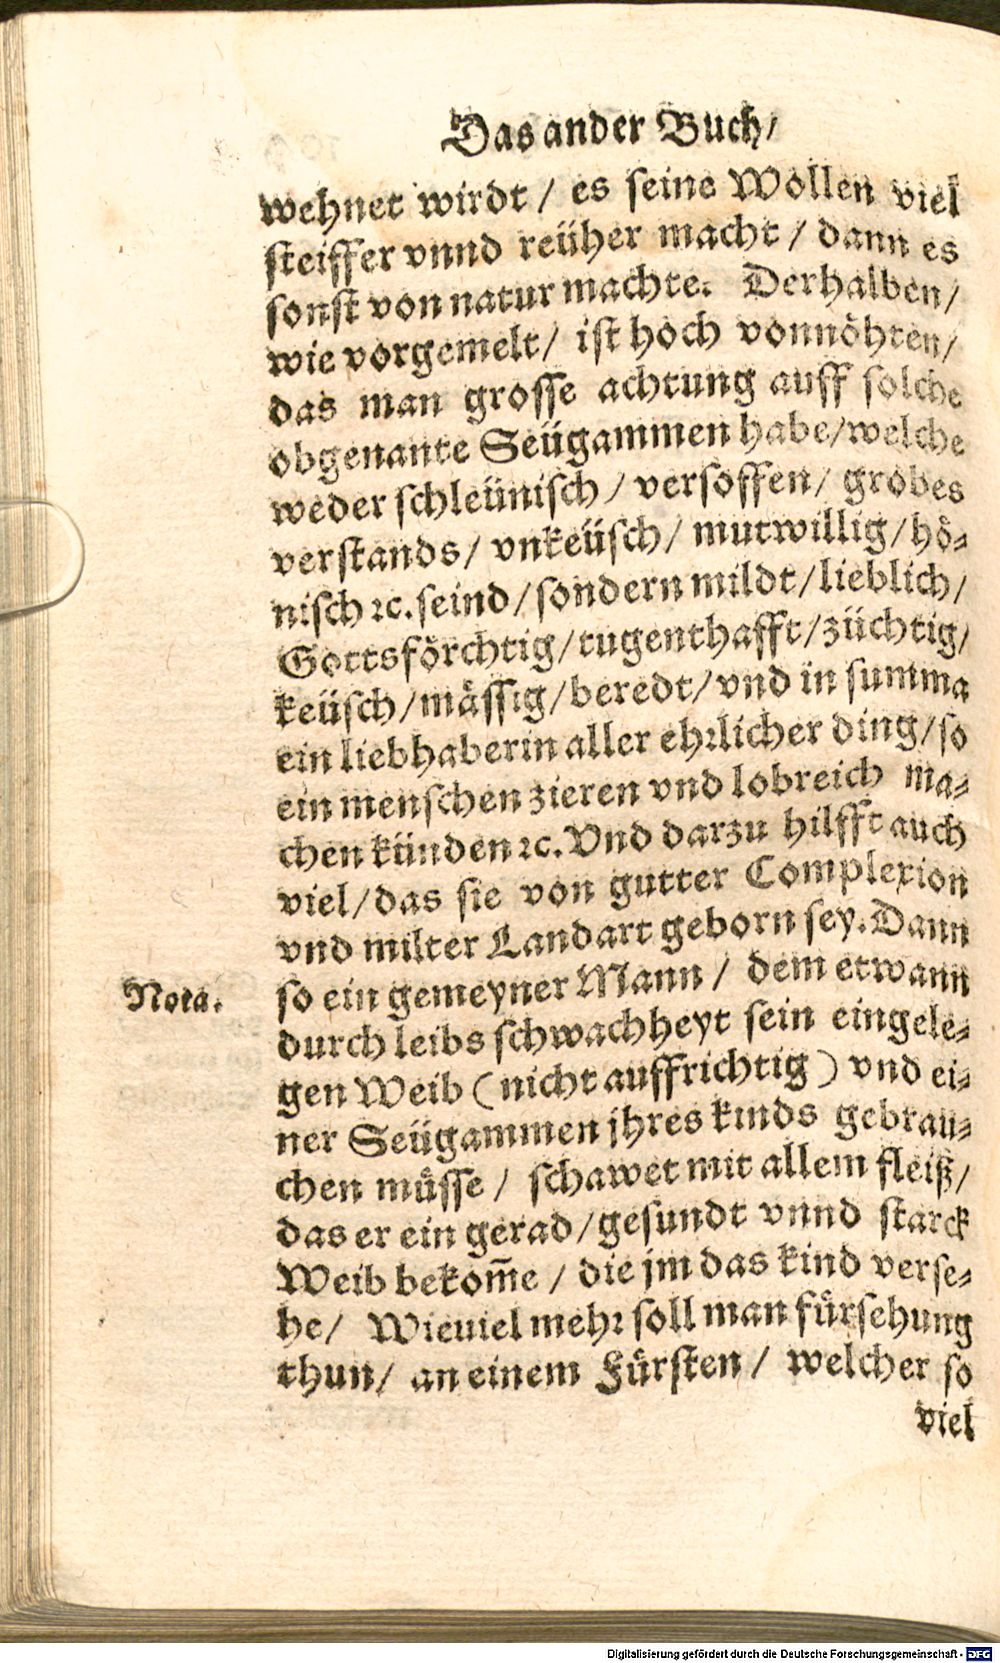 Das ander Buch/
wehnet wirdt / es seine Wollen viel
steiffer vnnd reüher macht / dann es
sonst von natur machte. Derhalben/
wie vorgemelt/ ist hoch vonnöhten/
das man grosse achtung auff solche
obgenante Seügammen habe/welche
weder schleünisch / versoffen/ grobes
verstands/ vnkeüsch/ mutwillig/hö⸗
nisch ꝛc. seind/sondern mildt/lieblich/
Gottsförchtig/tugenthafft/züchtig/
keüsch/mässig/beredt/vnd in summa
ein liebhaberin aller ehꝛlicher ding/so
ein menschen zieren vnd lobreich ma⸗
chen künden ꝛc. Vnd darzu hilfft auch
viel/das sie von gutter Complexion
vnd milter Landart geborn sey. Dann
Nota.
so ein gemeyner Mann / dem etwann
durch leibs schwachheyt sein eingele⸗
gen Weib (nicht auffrichtig) vnd ei⸗
ner Seügammen jhres kinds gebrau⸗
chen müsse / schawet mit allem fleiß/
das er ein gerad/gesundt vnnd starck
Weib bekom̄e / die jm das kind verse⸗
he/ Wieuiel mehꝛ soll man fürsehung
thun/ an einem Fürsten/ welcher so
viel
Digitalisierung gefördert durch die Deutsche Forschungsgemeinschaft - DFG